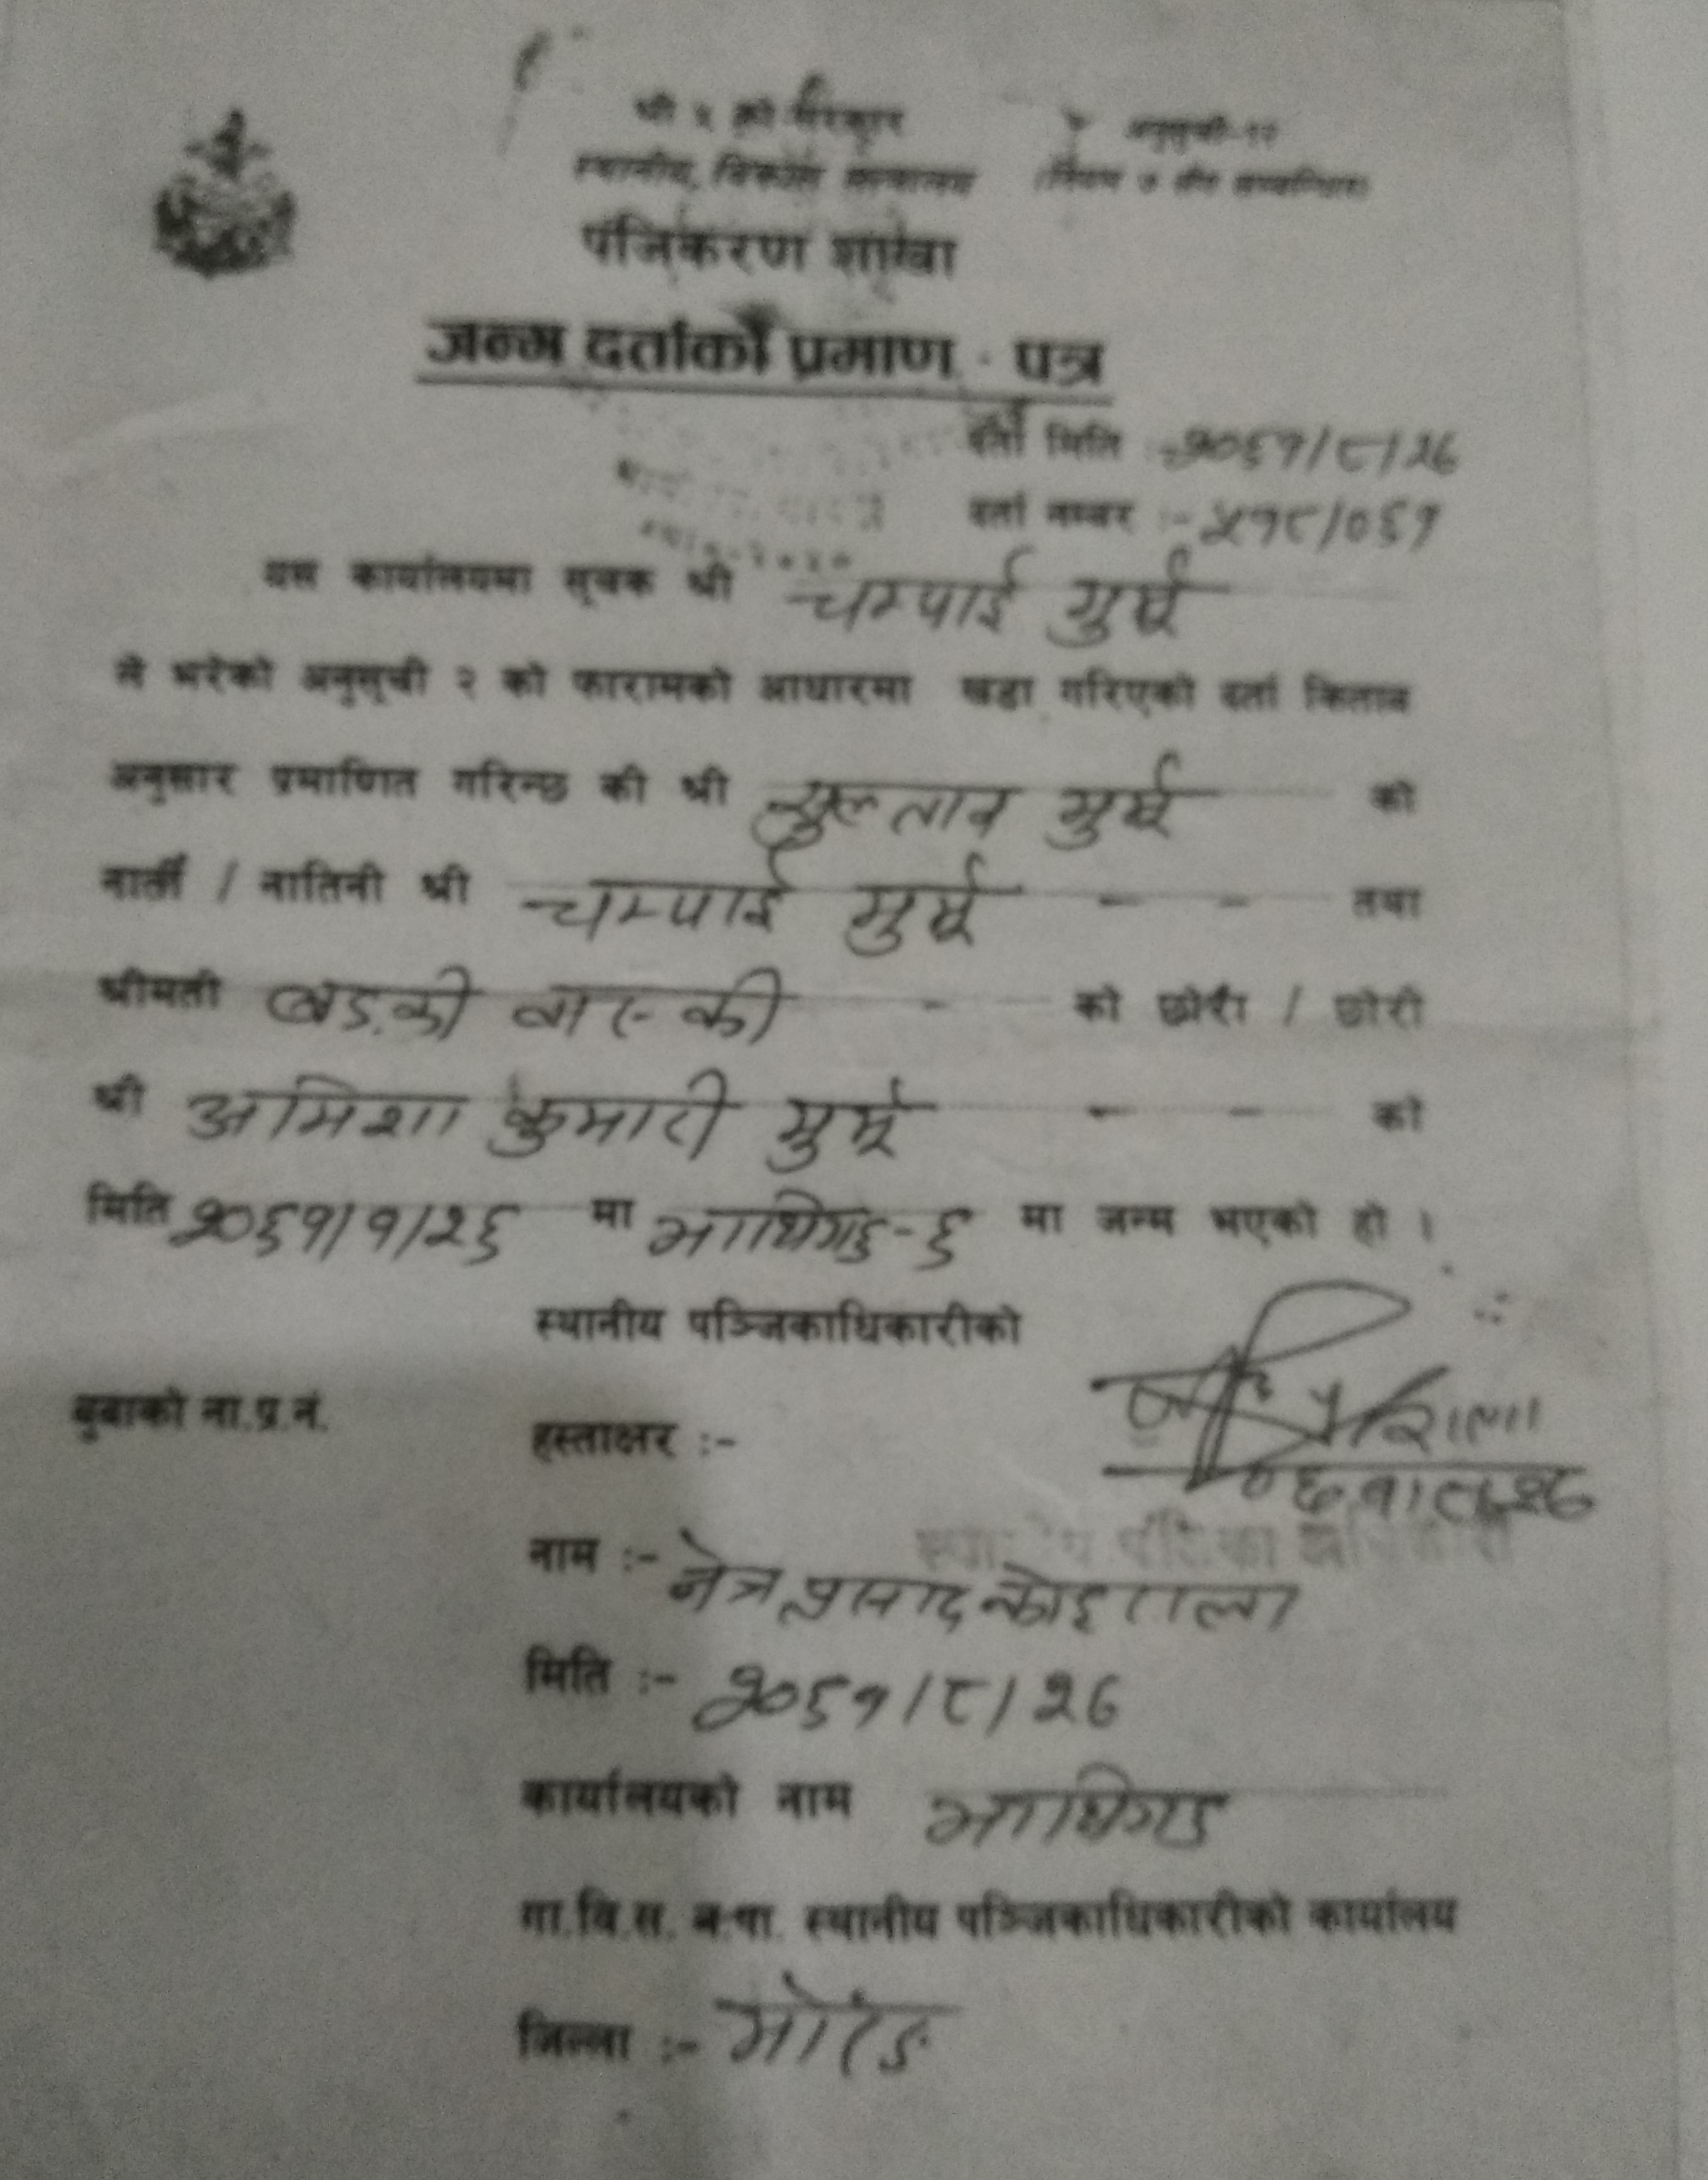 श्री ५ को सरकार
अनुसूची-१२
स्थानीय विकास मन्त्रालय
(नियम ७ सँग सम्बन्धित)
पंजिकरण शाखा
जन्म दर्ताको प्रमाण - पत्र
दर्ता मिति :- २०६१/८/२६
दर्ता नम्बर :- ५१८/०६१
यस कार्यालयमा सूचक श्री चम्पाई मुर्मू
ले भरेको अनुसूची २ को फारामको आधारमा खडा गरिएको दर्ता किताब
अनुसार प्रमाणित गरिन्छ की श्री सुल्तान मुर्मू को
नाती / नातिनी श्री चम्पाई मुर्मू - - तथा
श्रीमती बड्की बास्की - को छोरा / छोरी
श्री अमिशा कुमारी मुर्मू - - को
मिति २०६१/१/२६ मा भाथिगछ-६ मा जन्म भएको हो ।
स्थानीय पञ्जिकाधिकारीको
बुबाको ना.प्र.नं.
हस्ताक्षर :-
नाम :- नेत्र प्रसाद कोइराला
मिति :- २०६१/८/२६
कार्यालयको नाम
गा.वि.स. न.पा. स्थानीय पञ्जिकाधिकारीको कार्यालय
जिल्ला :- मोरङ